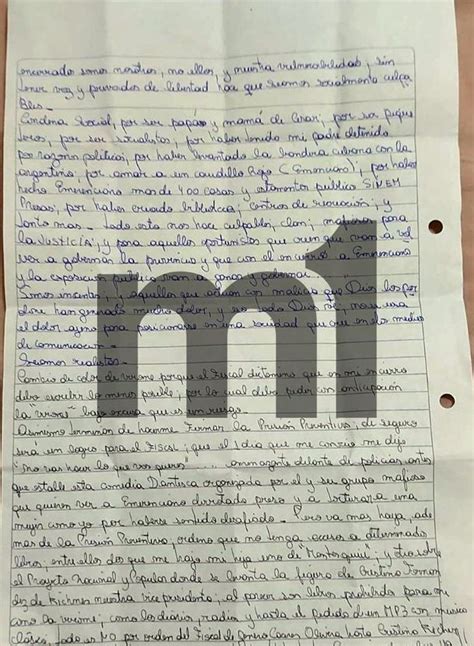 encerrados somos nosotros, no ellos, y nuestra vulnerabilidad, sin
tener voz y privados de libertad hace que seamos socialmente culpa
bles.-
Condena Social, por ser papá y mamá de Cesar; por ser piquete
teros, por ser socialistas, por haber tenido mi padre detenido
por razones politicas; por haber levantado la bandera cubana con la
argentina, por amar a un caudillo Rojo (Emerenciano); por haber
hecho Emerenciano mas de 400 casas y estamentos publico SIVEM
Presas; por haber creado biblioteca; centros de recreación; y
tanto mas.- todo esto nos hace culpables, clan; mafiosos para
la JUSTICIA; y para aquellos oportunistas que creen que van a vol
ver a gobernar la provincia y que con el encierro a Emerenciano
y la exposición publica van a ganar y gobernar.-
Somos inocentes; y aquellos que actuan con malicia que Dios los per
done han generado mucho dolor, y eso solo Dios ve; nace una
el dolor ajeno para posicionarse en una sociedad que cree en los medios
de comunicacion.-
Seamos realistas.-
Cambio de color de birome porque el Fiscal dictamino que en mi encierro
debo escribir lo menos posible; por lo cual debo pedir con anticipación
la "birome" bajo excusa que es un riesgo.-
Asimismo terminan de hacerme firmar la Prisión Preventiva; de seguro
sera un logro para el Fiscal; que el 1 dia que me conocio me dijo
"No vas hacer lo que vos queres" ... amenazante delante de policias antes
que estalle esta comedia Dantesca organizada por el y su grupo mafioso
que quieren ver a Emerenciano derrotado preso y a torturarse una
mujer como yo por haberse sentido desafiado.- Pero va mas haya, ade
mas de la Prisión Preventiva, ordeno que no tenga acceso a determinado
libros, entre ellos dos que me hajo mi hija uno de "Montesquieu"; y otro sobre
el Proyecto Nacional y Popular donde se levanta la figura de Cristina Fernan
dez de Kichner nuestra vice presidenta; al parecer son libros prohibidos para mi
como la birome; como los diarios, radios y hasta el pedido de un MP3 con musica
clasica, todo es NO por orden del Fiscal de Genero Caceres Olivera hasta Cristina Kichner
m1